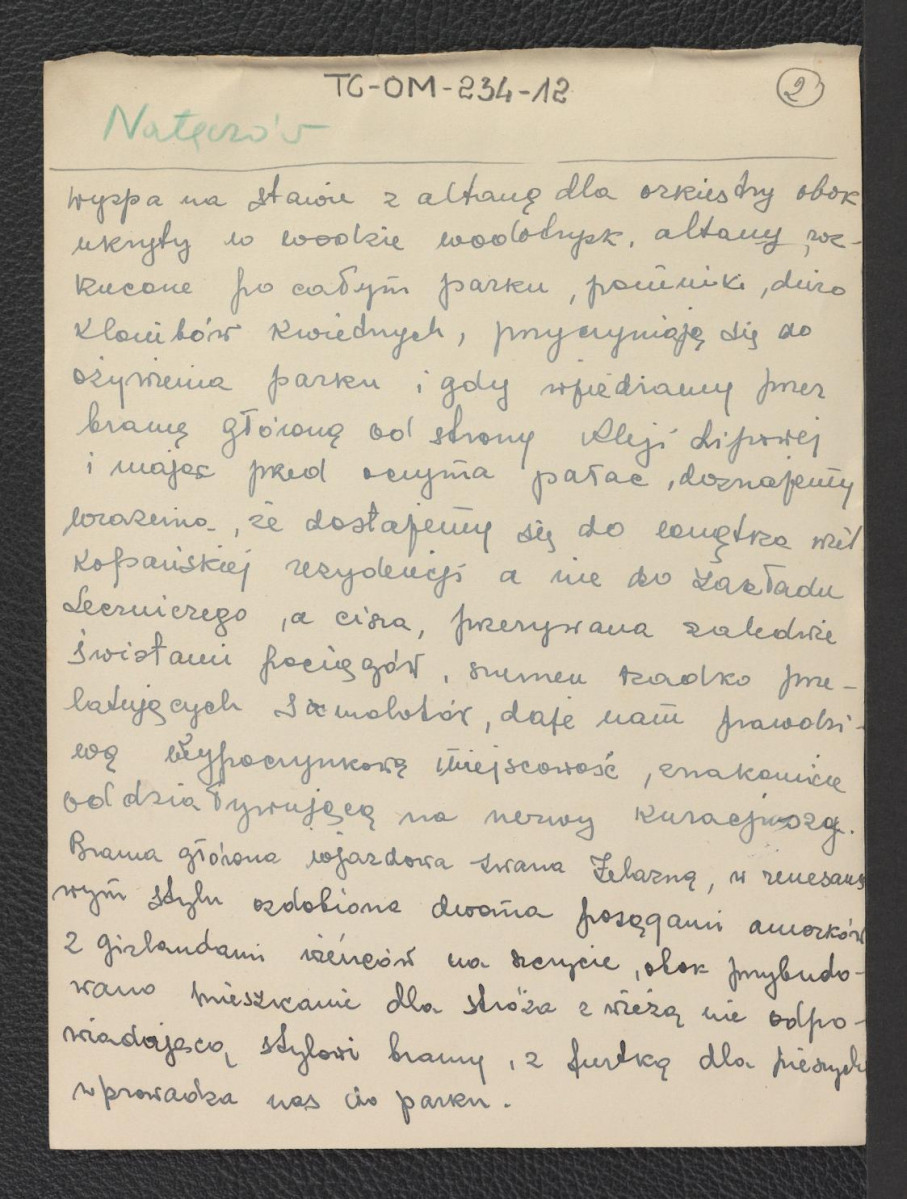 TG-OM-234-12
2
Nałęczów
wyspa na stawie z altaną dla orkiestry obok
ukryty w wodzie wodotrysk, altany roz-
rzucone po całym parku, pomniki, dużo
klombów kwietnych, przyczyniają się do
ożywienia parku i gdy wjeżdżamy przez
bramę główną od strony Aleji Lipowej
i mając przed oczyma pałac, doznajemy
wrażenia, że dostajemy się do wnętrza wiel
kopańskiej rezydencji a nie do Zakładu
Leczniczego, a cisza, przerywana zaledwie
świstami pociągów, szumem rzadko prze-
latujących samolotów, daje nam prawdzi-
wą wypoczynkową miejscowość, znakomicie
oddziaływującą na nerwy kuracjusza.
Brama główna wjazdowa zwana Żelazną, w renesanso
wym stylu ozdobiona dwoma posągami amorków
z girlandami wieńców na szczycie, obok przybudo-
wano mieszkanie dla stróża z wieżą nie odpo-
wiadającą stylowi bramy, z furtką dla pieszych
wprowadza nas do parku.